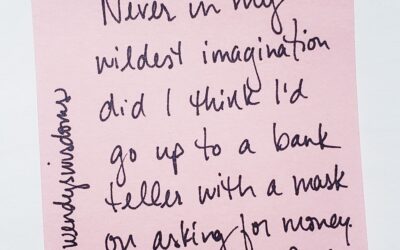 Never in my
wildest imagination
did I think I'd
go up to a bank
teller with a mask
on asking for money.
wendyswisdoms